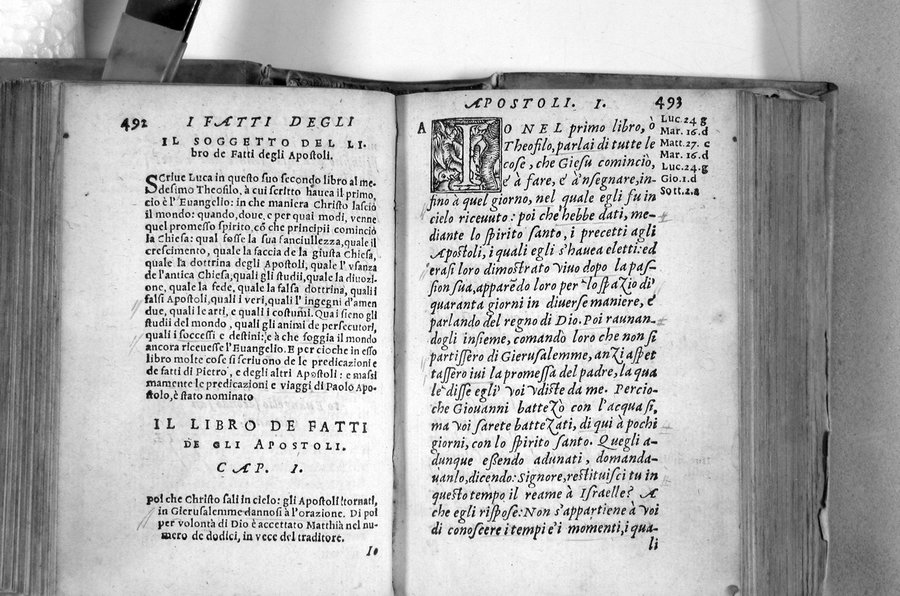 492 I FATTI DEGLI
IL SOGGETTO DEL LI-
bro de Fatti degli Apostoli.
SCriue Luca in questo suo secondo libro al me-
desimo Theofilo, à cui scritto hauea il primo,
cio è l'Euangelio: in che maniera Christo lasciò
il mondo: quando, doue, e per quai modi, venne
quel promesso spirito, cō che principii cominciò
la Chiesa: qual fosse la sua fanciullezza, quale il
crescimento, quale la faccia de la giusta Chiesa,
quale la dottrina degli Apostoli, quale l'vsanza
de l'antica Chiesa, quali gli studii, quale la diuozi-
one, quale la fede, quale la falsa dottrina, quali i
falsi Apostoli, quali i veri, quali l'ingegni d'amen
due, quali le arti, e quali i costumi. Quai sieno gli
studii del mondo, quali gli animi de persecutori,
quali i successi e destini: e à che foggia il mondo
ancora riceuesse l'Euangelio. E per cioche in esso
libro molte cose si scriuono de le predicazioni e
de fatti di Pietro, e degli altri Apostoli: e massi
mamente le predicazioni e viaggi di Paolo Apo-
stolo, è stato nominato
IL LIBRO DE FATTI
DE GLI APOSTOLI.
CAP. I.
Poi che Christo sali in cielo: gli Apostoli tornati,
in Gierusalemme dannosi à l'orazione. Di poi
per volontà di Dio è accettato Matthia nel nu-
mero de dodici, in vece del traditore.
Io
APOSTOLI. I. 493
A IO NEL primo libro, ò
Theofilo, parlai di tutte le
cose, che Giesu cominciò,
e à fare, e à'nsegnare, in-
fino à quel giorno, nel quale egli fu in
cielo riceuuto: poi che'hebbe dati, me-
diante lo spirito santo, i precetti agli
Apostoli, i quali egli s'hauea eletti: ed
erasi loro dimostrato viuo dopo la pas-
sion sua, apparēdo loro per lo spazio di
quaranta giorni in diuerse maniere, e
parlando del regno di Dio. Poi raunan-
dogli insieme, comando loro che non si
partissero di Gierusalemme, anzi aspet
tassero iui la promessa del padre, la qua
le disse egli voi vdiste da me. Percio-
che Giouanni battezò con l'acqua si,
ma voi sarete battezati, di qui à pochi
giorni, con lo spirito santo. Quegli a-
dunque essendo adunati, domanda-
uanlo, dicendo: Signore, restituisci tu in
questo tempo il reame à Israelle? A
che egli rispose: Non s'appartiene à voi
di conoscere i tempi e'i momenti, i qua-
li
Luc. 24 g
Mar. 16. d
Matt. 27. c
Mar. 16. d
Luc. 24. g
Gio. 1. d
Sott. 2. a